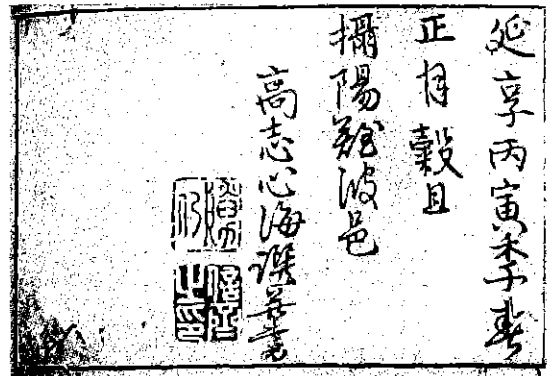 延享丙寅季春
正月穀旦
攝陽難波邑
高志心海譔并書